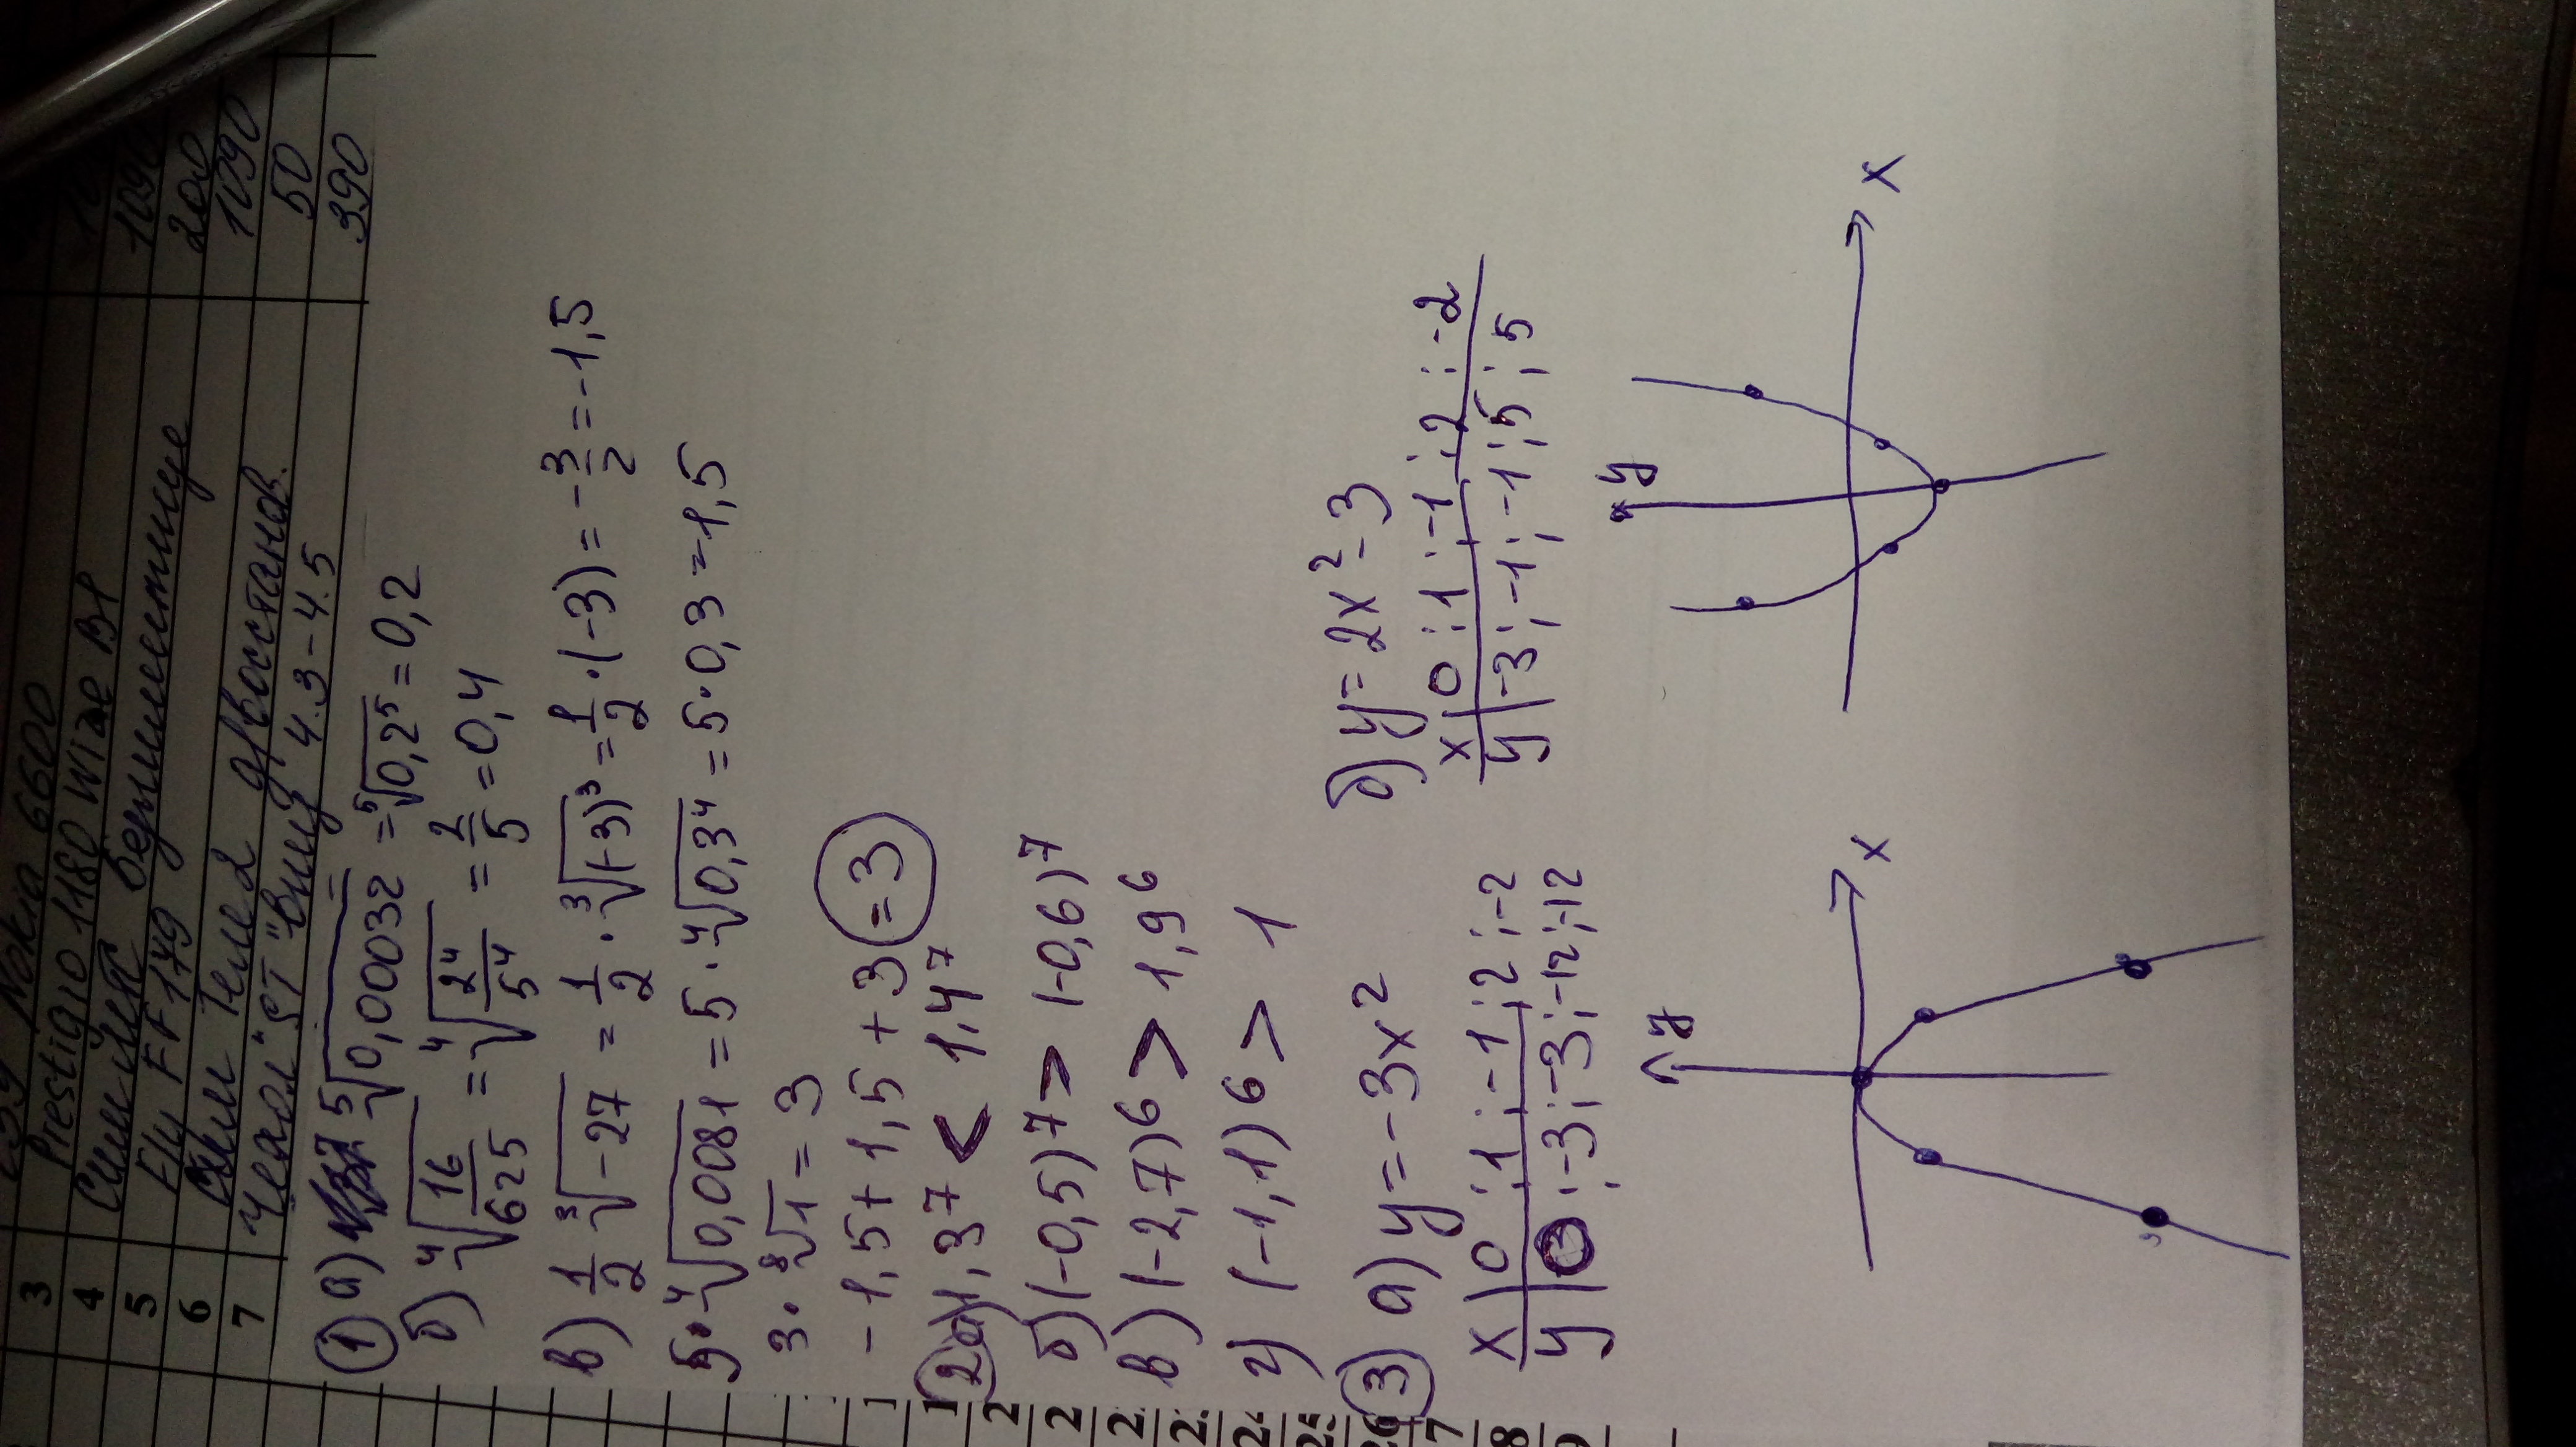 3 Nokia 6600
4 Prestigio 1180 Wize B1 109
5 Симилет безлимитище 200
6 Fly FF179 1090
7 Сим Теле2 д/восстанов. 50
Чехол "ST" Винд 4.3-4.5 390
① а) ⁵√0,00032 = ⁵√0,2⁵ = 0,2
б) ⁴√16/625 = ⁴√2⁴/5⁴ = 2/5 = 0,4
в) 1/2 ³√-27 = 1/2 · ³√(-3)³ = 1/2 · (-3) = -3/2 = -1,5
5 · ⁴√0,0081 = 5 · ⁴√0,3⁴ = 5 · 0,3 = 1,5
3 · ⁸√1 = 3
-1,5 + 1,5 + 3 = 3
② а) 1,3⁷ < 1,4⁷
б) (-0,5)⁷ > (-0,6)⁷
в) (-2,7)6 > 1,9⁶
г) (-1,1)6 > 1
③ а) y = -3x²
x | 0 ; 1 ; -1 ; 2 ; -2
y | 0 ; -3 ; -3 ; -12 ; -12
y
x
б) y = 2x² - 3
x | 0 ; 1 ; -1 ; 2 ; -2
y | -3 ; -1 ; -1 ; 5 ; 5
y
x